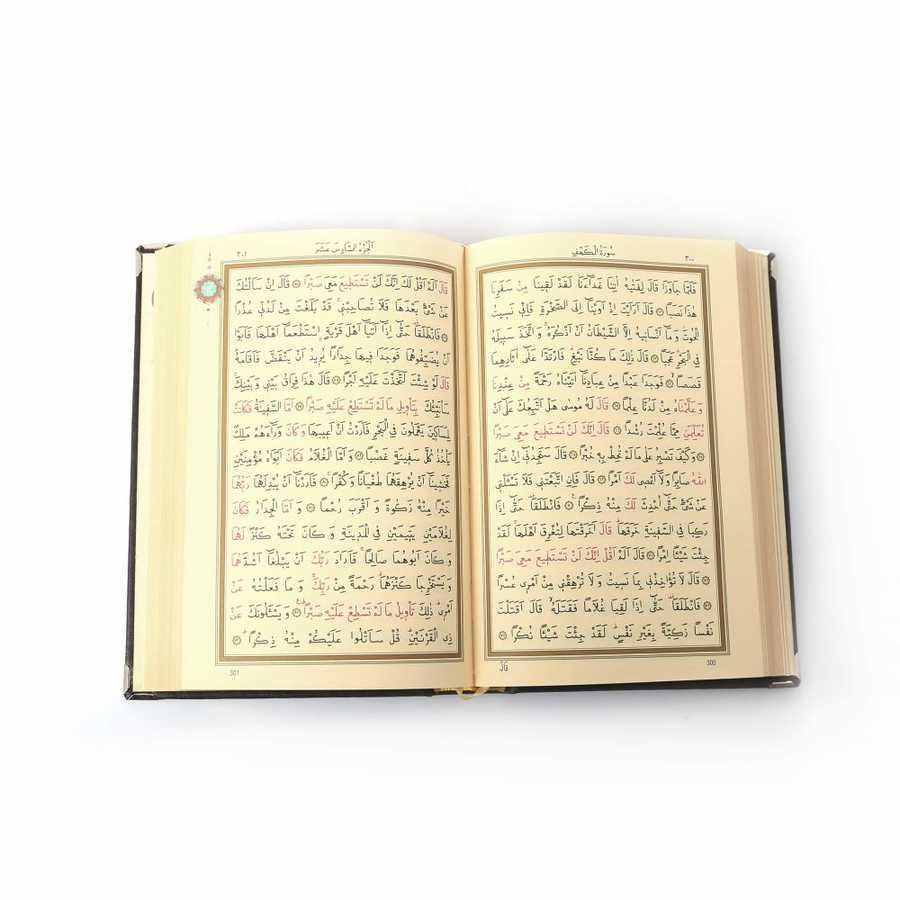 سُورَةُ الْكَهْفِ
٣٠٠
فَلَمَّا جَاوَزَا قَالَ لِفَتٰيهُ اٰتِنَا غَدَٓاءَنَاۘ لَقَدْ لَقٖينَا مِنْ سَفَرِنَا
هٰذَا نَصَبًا ۝ قَالَ اَرَاَيْتَ اِذْ اَوَيْنَٓا اِلَى الصَّخْرَةِ فَاِنّٖي نَسٖيتُ
الْحُوتَۘ وَمَٓا اَنْسَانٖيهُ اِلَّا الشَّيْطَانُ اَنْ اَذْكُرَهُۚ وَاتَّخَذَ سَبٖيلَهُ
فِي الْبَحْرِ عَجَبًا ۝ قَالَ ذٰلِكَ مَا كُنَّا نَبْغِ فَارْتَدَّا عَلٰٓى اٰثَارِهِمَا
قَصَصًا ۝ فَوَجَدَا عَبْدًا مِنْ عِبَادِنَٓا اٰتَيْنَاهُ رَحْمَةً مِنْ عِنْدِنَا
وَعَلَّمْنَاهُ مِنْ لَدُنَّا عِلْمًا ۝ قَالَ لَهُ مُوسٰى هَلْ اَتَّبِعُكَ عَلٰٓى اَنْ
تُعَلِّمَنِ مِمَّا عُلِّمْتَ رُشْدًا ۝ قَالَ اِنَّكَ لَنْ تَسْتَطٖيعَ مَعِيَ صَبْرًا
۝ وَكَيْفَ تَصْبِرُ عَلٰى مَا لَمْ تُحِطْ بِهٖ خُبْرًا ۝ قَالَ سَتَجِدُنٖٓي اِنْ شَٓاءَ
اللّٰهُ صَابِرًا وَلَٓا اَعْصٖي لَكَ اَمْرًا ۝ قَالَ فَاِنِ اتَّبَعْتَنٖي فَلَا تَسْـَٔلْنٖي
عَنْ شَيْءٍ حَتّٰٓى اُحْدِثَ لَكَ مِنْهُ ذِكْرًا ۝ فَانْطَلَقَا حَتّٰٓى اِذَا
رَكِبَا فِي السَّفٖينَةِ خَرَقَهَا قَالَ اَخَرَقْتَهَا لِتُغْرِقَ اَهْلَهَا لَقَدْ
جِئْتَ شَيْـًٔا اِمْرًا ۝ قَالَ اَلَمْ اَقُلْ اِنَّكَ لَنْ تَسْتَطٖيعَ مَعِيَ صَبْرًا
۝ قَالَ لَا تُؤَاخِذْنٖي بِمَا نَسٖيتُ وَلَا تُرْهِقْنٖي مِنْ اَمْرٖي عُسْرًا
۝ فَانْطَلَقَا حَتّٰٓى اِذَا لَقِيَا غُلَامًا فَقَتَلَهُ قَالَ اَقَتَلْتَ
نَفْسًا زَكِيَّةً بِغَيْرِ نَفْسٍ لَقَدْ جِئْتَ شَيْـًٔا نُكْرًا ۝
300
اَلْجُزْءُ السَّادِسَ عَشَرَ
٣٠١
قَالَ اَلَمْ اَقُلْ لَكَ اِنَّكَ لَنْ تَسْتَطٖيعَ مَعِيَ صَبْرًا ۝ قَالَ اِنْ سَاَلْتُكَ
عَنْ شَيْءٍ بَعْدَهَا فَلَا تُصَاحِبْنٖي قَدْ بَلَغْتَ مِنْ لَدُنّٖي عُذْرًا
۝ فَانْطَلَقَا حَتّٰٓى اِذَٓا اَتَيَٓا اَهْلَ قَرْيَةٍ اسْتَطْعَمَٓا اَهْلَهَا فَاَبَوْا
اَنْ يُضَيِّفُوهُمَا فَوَجَدَا فٖيهَا جِدَارًا يُرٖيدُ اَنْ يَنْقَضَّ فَاَقَامَهُ
قَالَ لَوْ شِئْتَ لَتَّخَذْتَ عَلَيْهِ اَجْرًا ۝ قَالَ هٰذَا فِرَاقُ بَيْنٖي وَبَيْنِكَ
سَاُنَبِّئُكَ بِتَاْوٖيلِ مَا لَمْ تَسْتَطِعْ عَلَيْهِ صَبْرًا ۝ اَمَّا السَّفٖينَةُ فَكَانَتْ
لِمَسَاكٖينَ يَعْمَلُونَ فِي الْبَحْرِ فَاَرَدْتُ اَنْ اَعٖيبَهَا وَكَانَ وَرَٓاءَهُمْ مَلِكٌ
يَاْخُذُ كُلَّ سَفٖينَةٍ غَصْبًا ۝ وَاَمَّا الْغُلَامُ فَكَانَ اَبَوَاهُ مُؤْمِنَيْنِ
فَخَشٖينَٓا اَنْ يُرْهِقَهُمَا طُغْيَانًا وَكُفْرًا ۝ فَاَرَدْنَٓا اَنْ يُبْدِلَهُمَا رَبُّهُمَا
خَيْرًا مِنْهُ زَكٰوةً وَاَقْرَبَ رُحْمًا ۝ وَاَمَّا الْجِدَارُ فَكَانَ
لِغُلَامَيْنِ يَتٖيمَيْنِ فِي الْمَدٖينَةِ وَكَانَ تَحْتَهُ كَنْزٌ لَهُمَا
وَكَانَ اَبُوهُمَا صَالِحًا فَاَرَادَ رَبُّكَ اَنْ يَبْلُغَٓا اَشُدَّهُمَا
وَيَسْتَخْرِجَا كَنْزَهُمَا رَحْمَةً مِنْ رَبِّكَ وَمَا فَعَلْتُهُ عَنْ
اَمْرٖي ذٰلِكَ تَاْوٖيلُ مَا لَمْ تَسْطِعْ عَلَيْهِ صَبْرًا ۝ وَيَسْـَٔلُونَكَ عَنْ
ذِي الْقَرْنَيْنِ قُلْ سَاَتْلُوا عَلَيْكُمْ مِنْهُ ذِكْرًا ۝
301